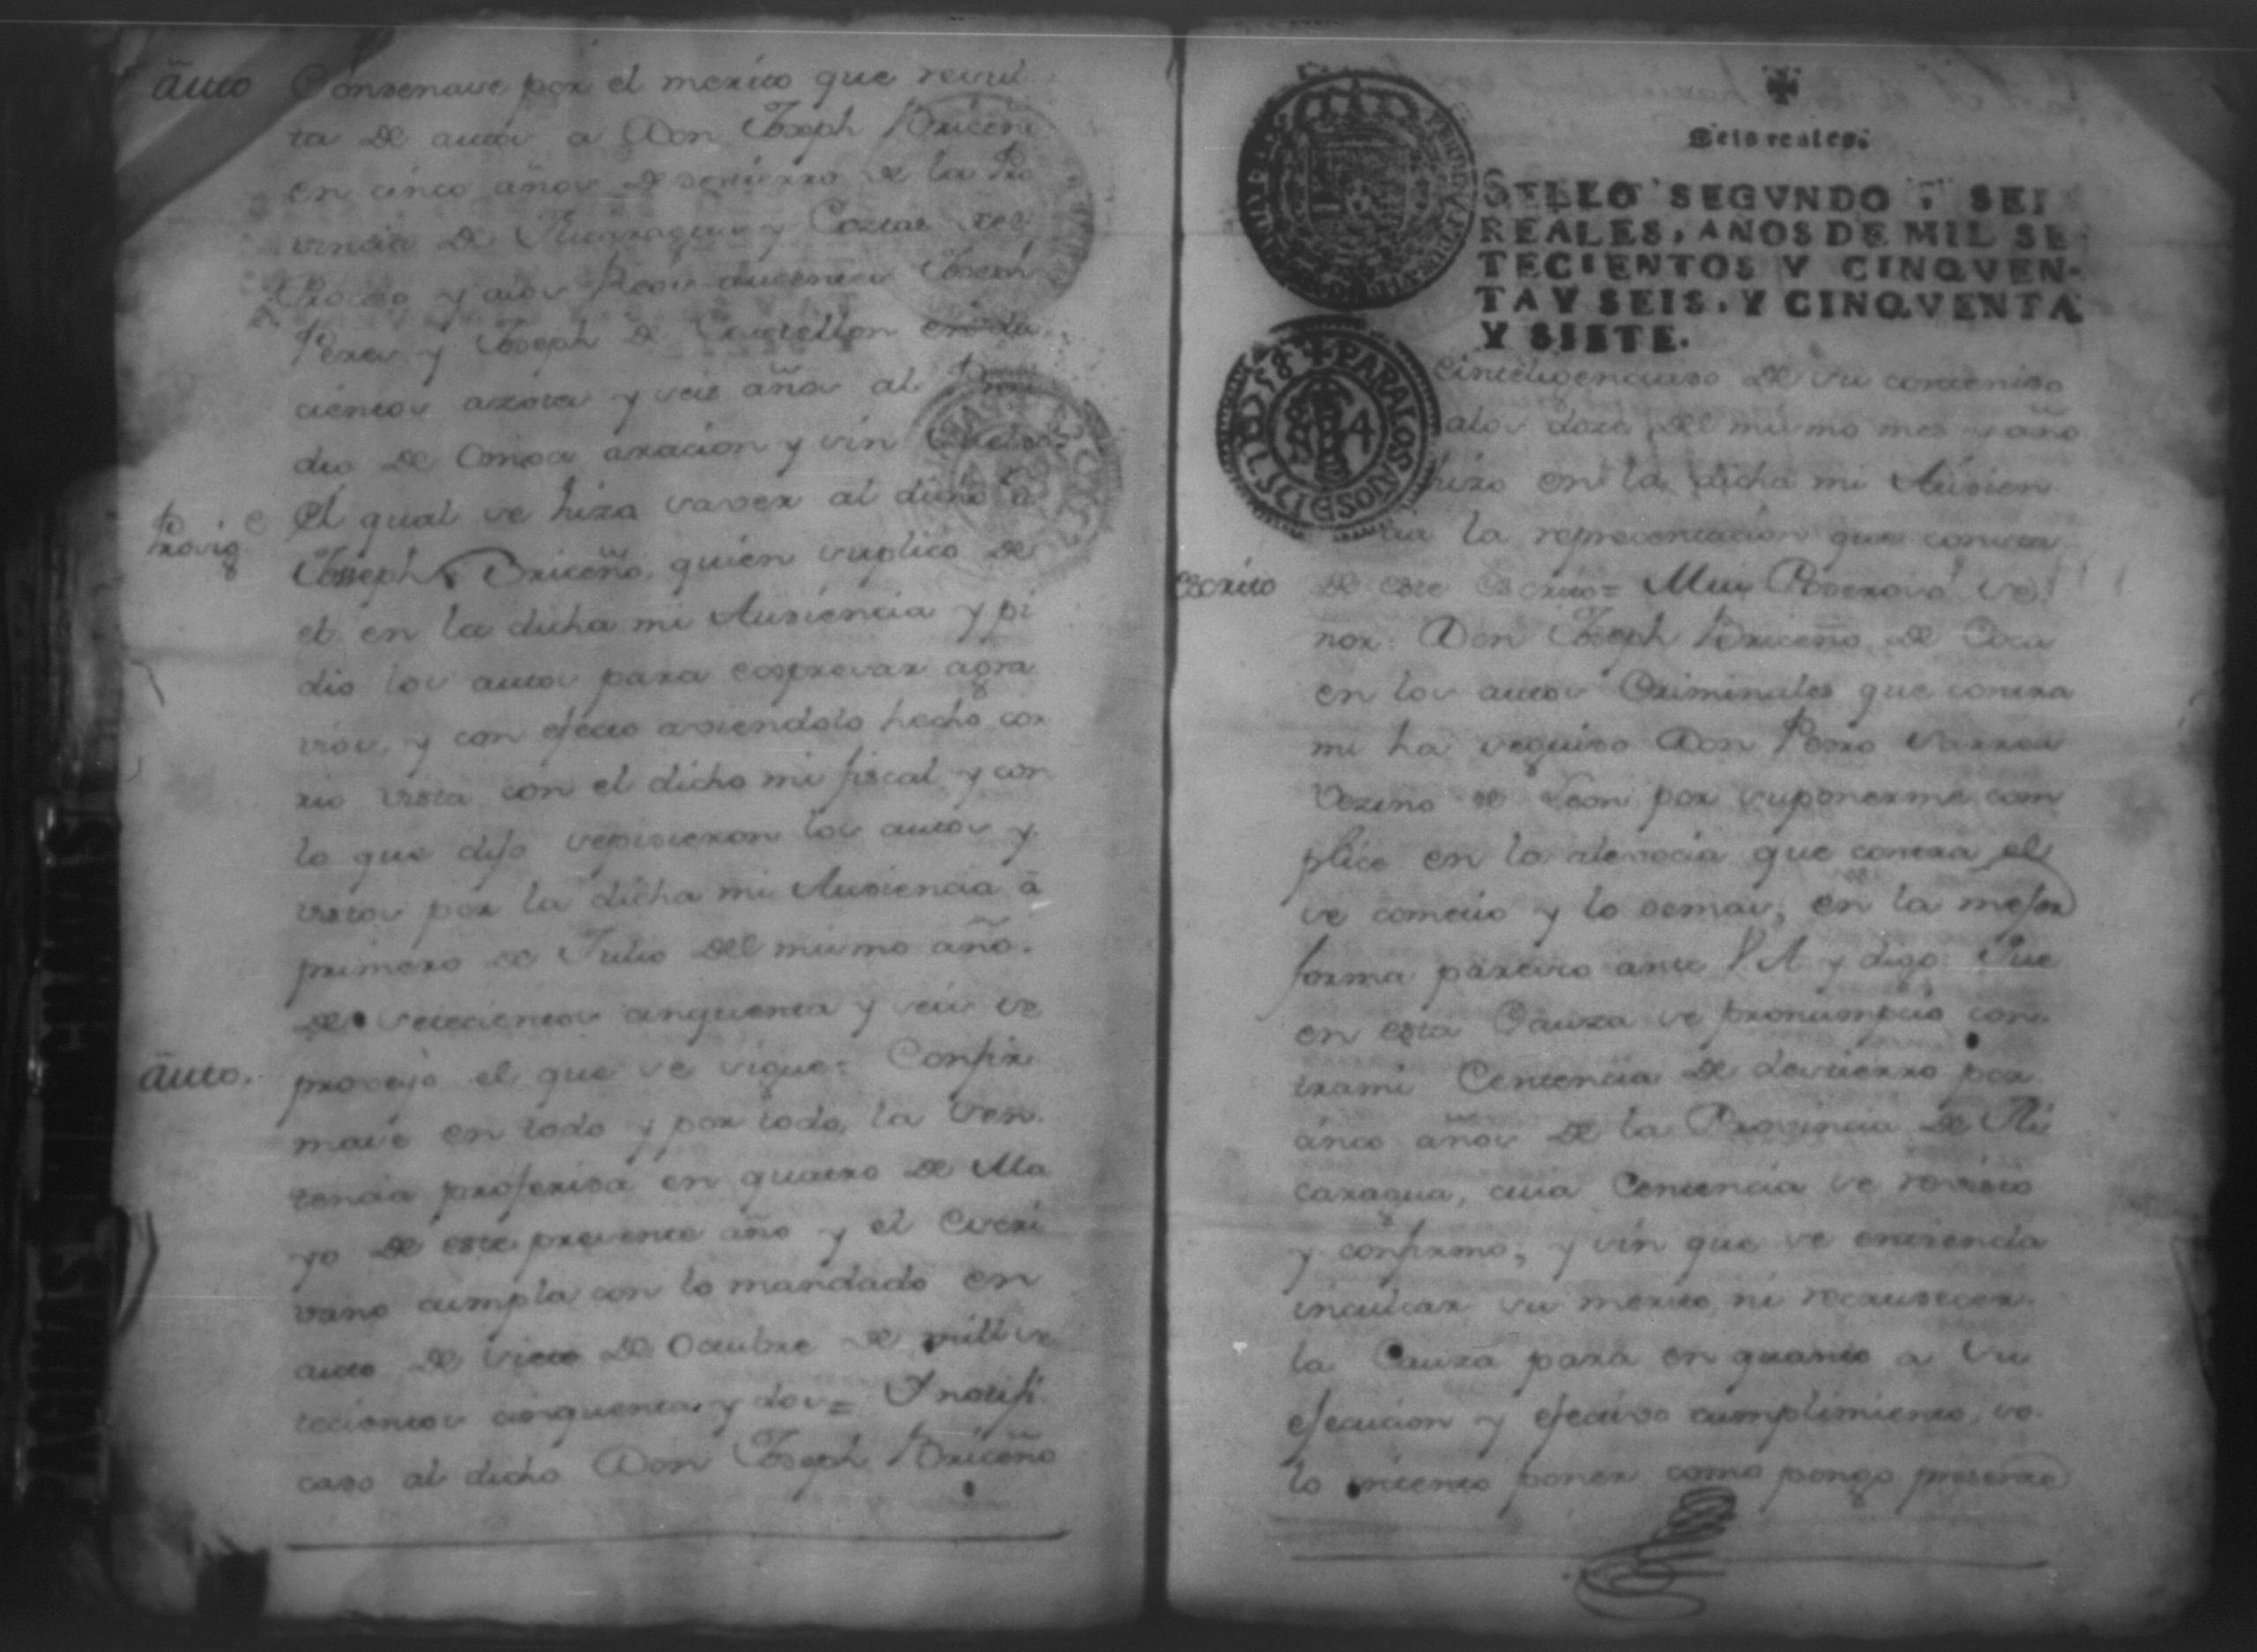 auto Condenase por el merito que resul
ta de autos a Don Joseph Briceño
en cinco años de destierro de la Pro
vincia de Nicaragua y Costas del
Proceso y a los Reos ausentes Joseph
Perez y Joseph de Castellon en du
cientos azotes y seis años al Presi
dio de Omoa aracion y sin sueldo
Provig.e El qual se hizo saver al dicho D.n
Joseph Briceño, quien suplico de
el en la dicha mi Audiencia y pi
dio los autos para expresar agra
vios, y con efecto aviendolo hecho cor
rio vista con el dicho mi fiscal y con
lo que dijo se pidieron los autos y
vistos por la dicha mi Audiencia â
primero de Julio del mismo año.
de setecientos cinquenta y seis se
auto. proveyo el que se sigue= Confir
mase en todo y por todo, la Sen
tencia proferida en quatro de Ma
yo de este presente año y el Escri
vano cumpla con lo mandado en
auto de siete de Octubre de mill se
tecientos cinquenta y dos= Y notifi
cado al dicho Don Joseph Briceño
Seis reales.
SELLO SEGVNDO, SEI
REALES, AÑOS DE MIL SE-
TECIENTOS Y CINQVEN-
TA Y SEIS, Y CINQVENTA
Y SIETE.
1758 PARA LOS
e inteligenciado de su contenido
a los doze del mismo mes y año
hizo en la dicha mi Audien
cia la representacion que consta
Escrito de este Escrito= Mui Poderoso Se
ñor: Don Joseph Briceño de Coca
en los autos Criminales que contra
mi ha seguido Don Pedro
Vezino de Leon por suponerme com
plice en la alevocia que contra el
se cometio y lo demas, en la mejor
forma paresco ante V.A. y digo: Que
en esta Cauza se pronumpcio con
trami Centencia de destierro por
cinco años de la Provincia de Ni
caragua, cuia Centencia se revisto
y confirmo, y sin que se entienda
inculcar su merito, ni recrudecer
la Cauza para en quanto a su
ejecucion y efectivo cumplimiento, so
lo intento poner como pongo presente